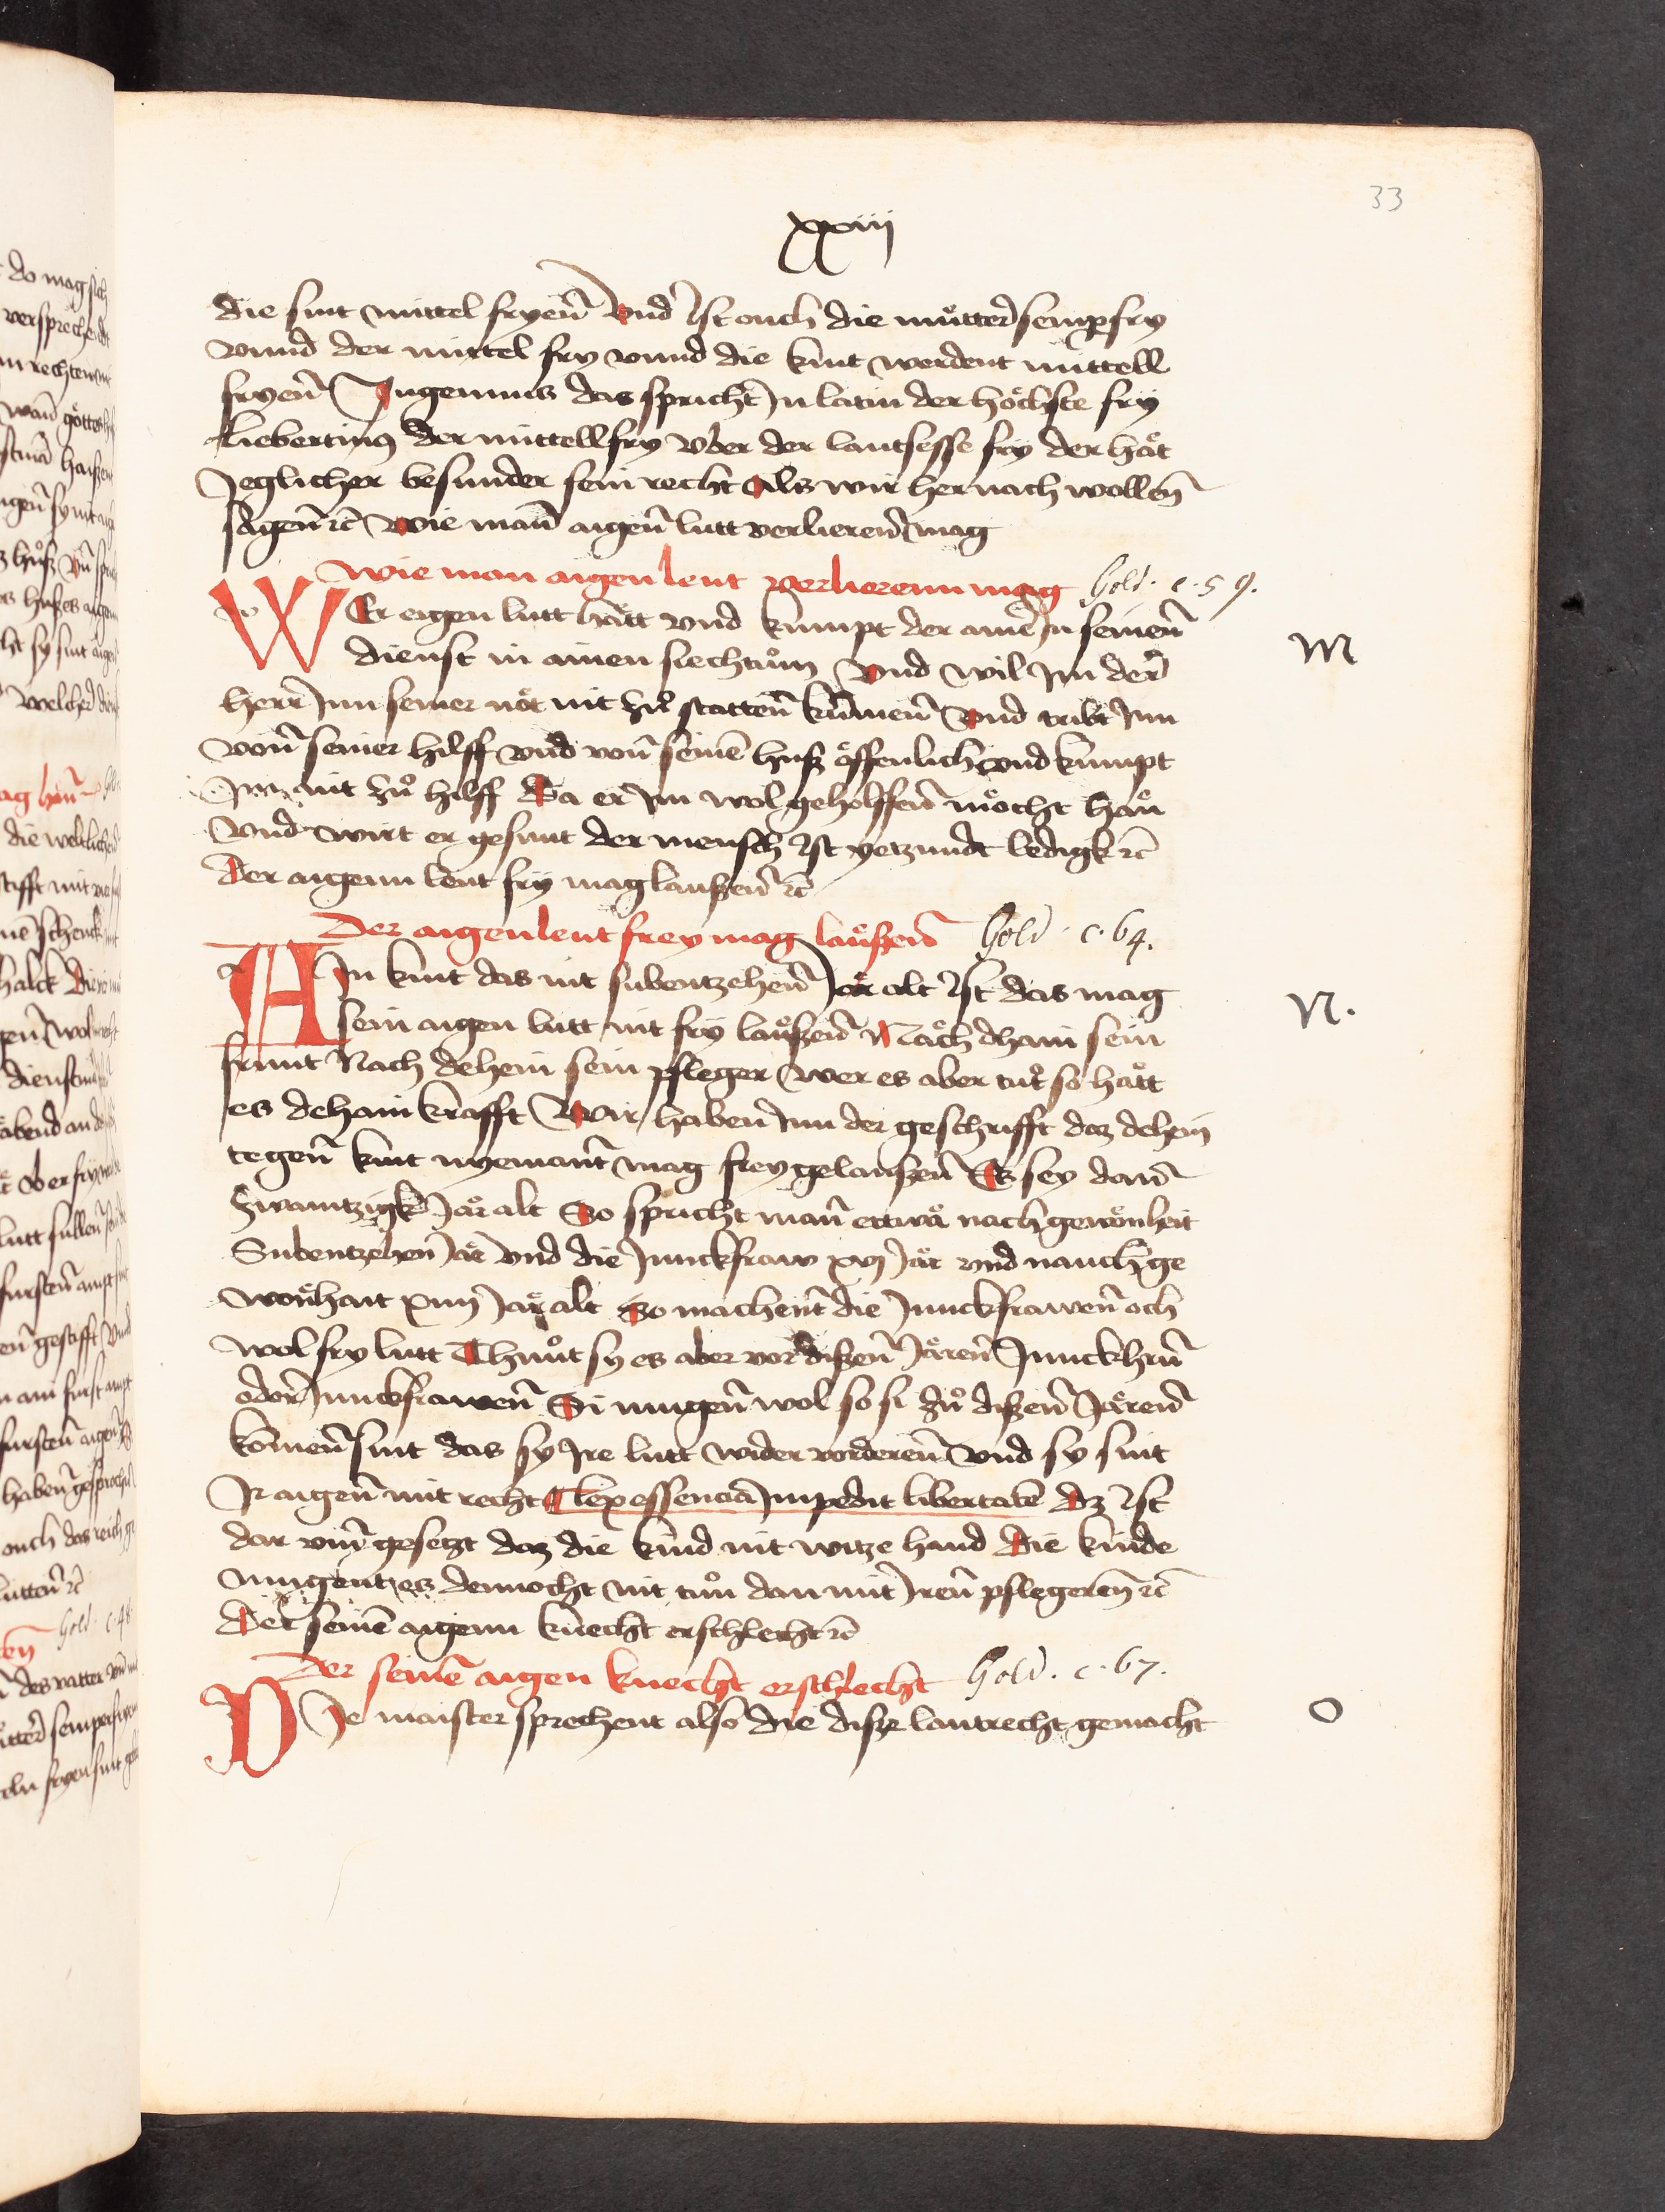 33
xxxiij
die sint mittel fryen̄ Vnd Ist ouch die muͤtter sempfry
vnnd der mittel fry vnnd die kint werdent mittell
fryen̄ Ingenuus das spricht In latin der höchste fry
Liebertinus der mittellfry Vber der lantsesse fry der hät
Jeglicher besunder sein recht Als wir her nach wollen̄
sagen̄ ꝛc̄ Wie man̄ aigen̄ lutt verlieren̄ mag
Wie man aigen leut verlierenn mag Gold. c. 59.
WEr eigen lutt hått vnd kumpt der ainē In seinen̄
dienst in ainen siechtům Vnd wil Im der
herr Inn seiner nöt nit zů statten̄ kumen̄ Vnd tribt Inn
von̄ seiner hilff vnd von̄ seinē huß öffenlich vnd kumpt
Im nit zů hilff Da er Im wol geholffen̄ möcht han
Vnd wirt er gesunt der mensch Ist yetzundt ledigk ꝛc̄
Der aigenn leut fry mag laußen̄ ꝛc̄
Der aigen leut frey mag laͧßen̄ Gold. c. 64.
AIn kint das nit subentzehen̄ Jår alt Ist das mag
sein aigen lutt nit fry laußen̄ Nach dhain sein
frunt Nach dehein sein pfleger Wer es aber tůt so hått
es dehain krafft Wir haben Inn der geschrifft daz dehein
tegen̄ kint nyemant mag frey gelaußen̄ Es sey dann̄
zwantzigk Jår alt So spricht man̄ ettwå nach gewönheit
Subentzehen Jår vnd die Junckfraw xvj Jår vnd nauch ge
wonhait xiiij Jår alt So machent die Junckfrawen̄ och
wol fry lutt Thuůt sy es aber vor dißen̄ Jåren̄ Junckhern̄
oder Junckfrawen̄ Si mugen̄ wol so si zů dißen̄ Jåren̄
komen̄ sint das sy Ire lutt wider vorderen̄ Vnd sy sint
Ir aigen̄ mit recht Lex essencia Impedit libertatē Dz Ist
dar vm̄ gesetzt daz die kind nit witze hand Die kinde
mugent es dennocht nit tůn dan mit Iren̄ pflegeren̄ ꝛc̄
Der seinē aigenn knecht erschlecht ꝛc̄
Der seinē aigen knecht erschlecht Gold. c. 67.
DIe maister sprechent also die dißze lantrecht gemacht
M
N.
O